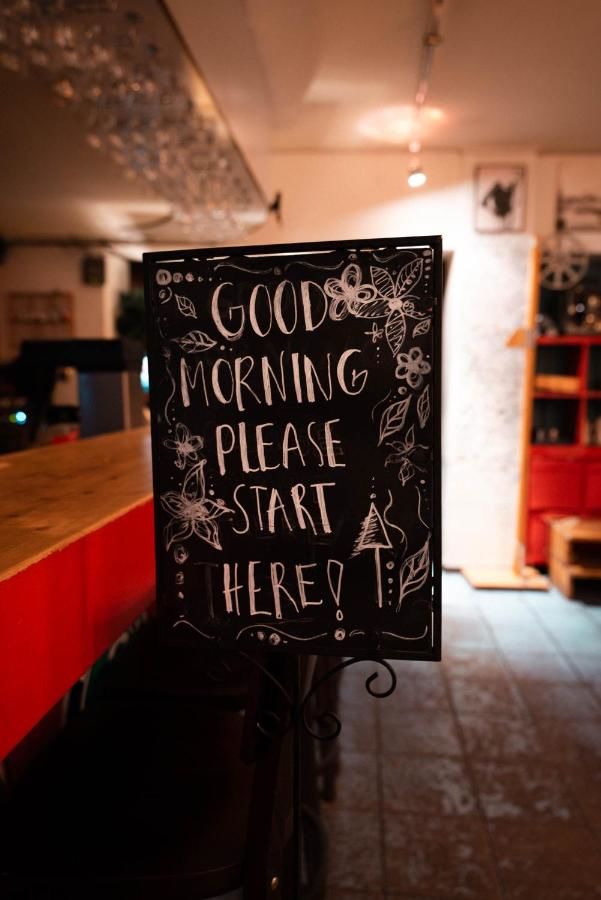 GOOD
MORNING
PLEASE
START
HERE!